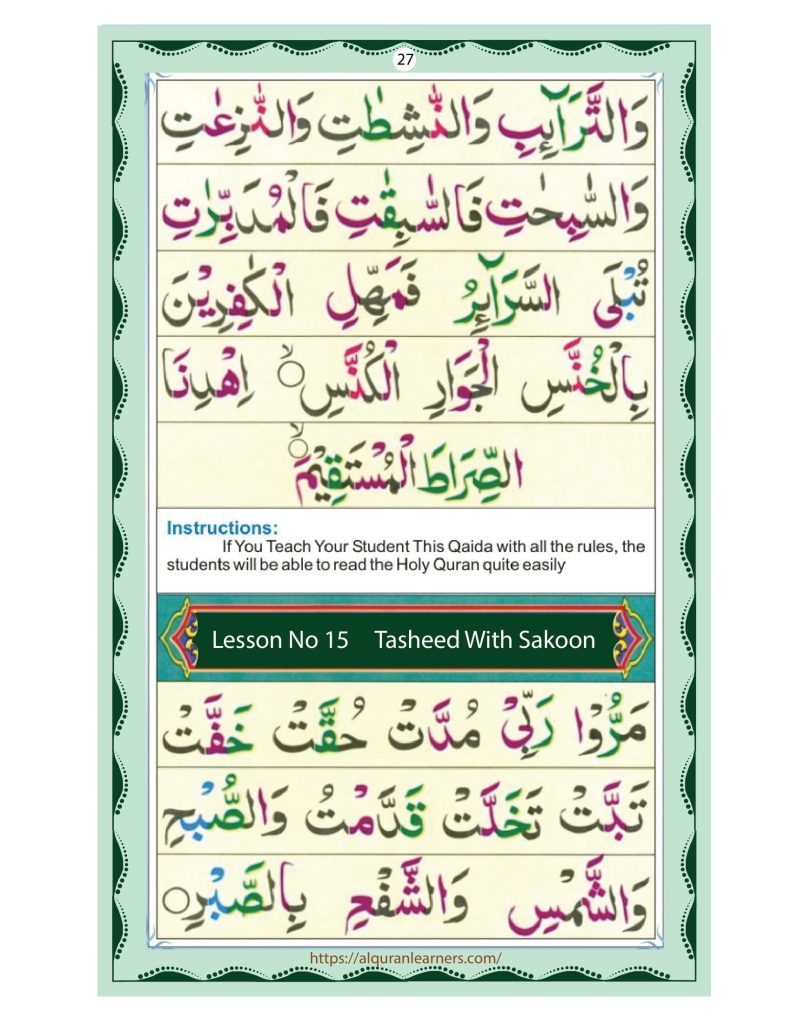 27
وَالتَّرَآئِبِ وَالنّٰشِطٰتِ وَالنّٰزِعٰتِ
وَالسّٰبِحٰتِ فَالسّٰبِقٰتِ فَالْمُدَبِّرٰتِ
تُبْلَى السَّرَآئِرُ فَمَهِّلِ الْكٰفِرِيْنَ
بِالْخُنَّسِ الْجَوَارِ الْكُنَّسِ ۙ اِهْدِنَا
الصِّرَاطَ الْمُسْتَقِيْمَ ۙ
Instructions:
If You Teach Your Student This Qaida with all the rules, the
students will be able to read the Holy Quran quite easily
Lesson No 15 Tasheed With Sakoon
مَرُّوْا رَبِّىْ مُدَّتْ حُقَّتْ خَفَّتْ
تَبَّتْ تَخَلَّتْ قَدَّمْتُ وَالصُّبْحِ
وَالشَّمْسِ وَالشَّفْعِ بِالصَّبْرِ ○
https://alquranlearners.com/